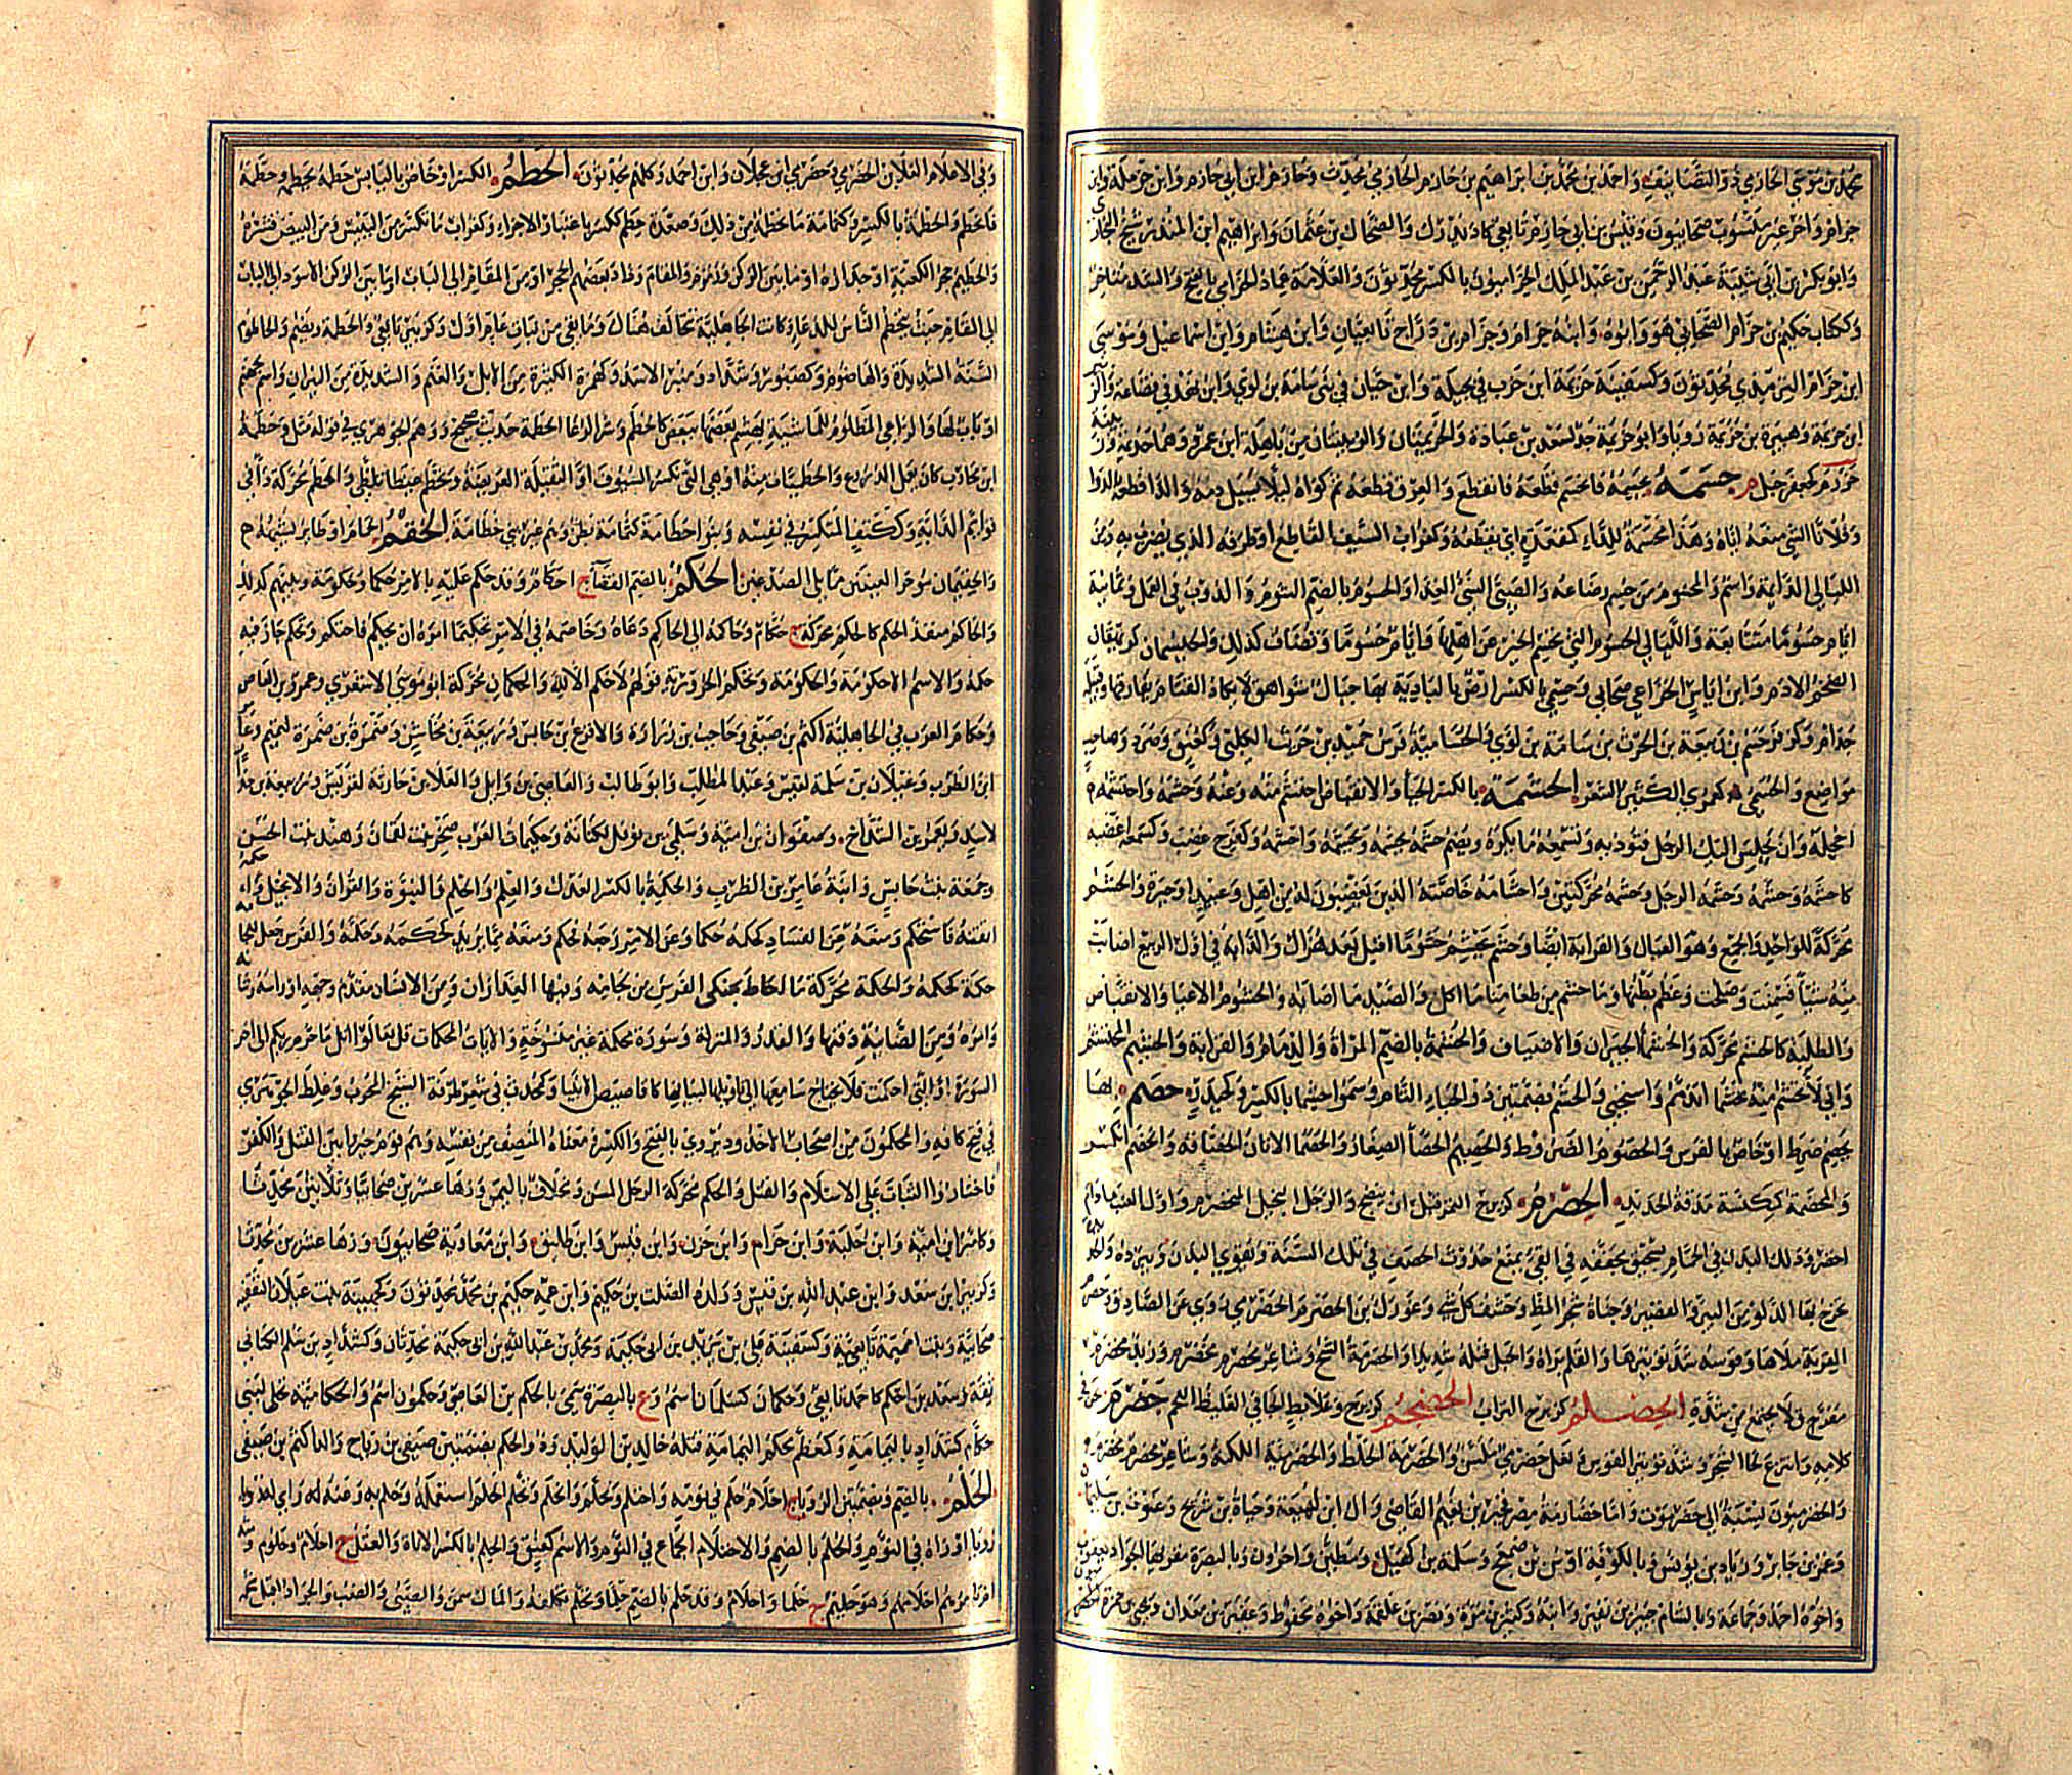 محمد بن موسى الحازمي ذو التصانيف واحمد بن محمد بن ابراهيم بن حازم الحازمي محدث وحازم ابن ابي حازم وابن حرملة وابن
حزام واخر غير منسوب صحابيون وقيس بن ابي حازم تابعي كاد يدرك والضحاك بن عثمان وابراهيم ابن المنذر شيخ البخاري
وابو بكر بن ابي شيبة عبد الرحمن بن عبد الملك الحزاميون بالكسر محدثون والعلامة عماد الحزامي بالفتح والشد متاخر
وككتاب حكيم بن حزام الصحابي هو وابوه وابنه حزام وحزام بن دراج تابعيان وابن هشام وابن اسماعيل وموسى
ابن حزام الترمذي محدثون وكسفينة حزيمة ابن حرب في بجيلة وابن حيان في بني سامة بن لوي وابن نهد في قضاعة والزبير
ابن خزيمة وهبيرة بن خزيمة رويا وابو حزيمة جد لسعد بن عبادة والحزيمتان والزبينتان من باهلة ابن عمرو وهما حزيمة وزبينة
حزرم كجعفر جبل م حسمه يحسمه فانحسم قطعه فانقطع والعرق قطعه ثم كواه ليلا يسيل دمه والدا قطعه بالدوا
وفلانا الشي منعه اياه وهذا محسمة للداء كمقعدة اي يقطعه وكغراب السيف القاطع او طرفه الذي يضرب به ومن
الليالي الدايمة واسم والمحسوم من حسم رضاعه والصبي السيئ الغذا والحسوم بالضم الشوم والدؤوب في العمل وثمانية
ايام حسوما متتابعة والليالي الحسوم التي تحسم الخير عن اهلها وايام حسوما وتضاف كذلك والحيسمان كريهقان
الضخم الادم وابن اياس الخزاعي صحابي وحسمى بالكسر ارض بالبادية بها جبال شواهق لا يكاد القتام يفارقها وقبيلة
جذام وكزفر حسم بن ربيعة بن الحرث بن سامة بن لوي والحسامية فرس حميد بن حريث الكلبي وكعنق وصرد وصاحب
مواضع والحسمي كعمري الكثير الشعر الحشمة بالكسر الحيا والانقباض احتشم منه وعنه وحشمه واحشمه
اخجله وان يجلس اليك الرجل فتوذيه وتسمعه ما يكره ويضم حشمه يحشمه ويحشمه واحشمه وكفرح غضب وكسمعه اغضبه
كاحشمه وحشمه وحشمة الرجل وحشمه محركتين واحشامه خاصته الذين يغضبون له من اهل وعبيد او جيرة والحشم
محركة للواحد والجمع وهو العيال والقرابة ايضا وحشم يحشم حشوما اقبل بعد هزال والدابة في اول الربيع اصابت
منه شيئا فسمنت وصلحت وعظم بطنها وما حشم من طعامنا ما اكل والصيد ما اصابه والحشوم الاعيا والانقباض
والطلبة كالحشم محركة والحشماء الجيران والاضياف والحشمة بالضم المراة والذمام والقرابة والحشيم المحتشم
واني لاتحشم منه تحشما اتذمم واستحيي والحشم بضمتين ذوو الحياء التام وسموا حيشما بالكسر وكحيدر حصم بها
يحصم ضرط او خاص بالفرس والحصوم الضروط والحصيم الحصا الصغار والحصماء الاتان الخضافة وانحصم انكسر
والمحصمة كمكنسة مدقة الحديد الحصرم كزبرج الثمر قبل ان ينضج والرجل البخيل المتحصرم واول العنب ما دام
اخضر ودلك البدن في الحمام بسحيق مجففه في الفي يمنع حدوث الحصف في تلك السنة ويقوي البدن ويبرده والعود
يخرج بها الدلو من البير والعفير وجناة شجر المظ وحشف كل شي وعورك بن الحصرم الحضرمي روى عن الصادق وحصرم
القربة ملاها وقوسه شد توتيرها والقلم براه والحبل فتله شديدا والحصرمة الشح وشاعر محصرم مخضرم وزبد محصرم
متفرق ولا يجتمع من شدة الحضلم كزبرج التراب الحضجم كزبرج وعلابط الجافي الغليظ اللحم حضرم في
كلامه وانتزع لحا الشجر وشد توتير القوس ونعل حضرمي ملسن والحضرمة الخلط والحضرمية اللكنة وشاعر محضرم مخضرم
والحضرميون نسبة الى حضرموت واما حضارمة مصر فخير بن نعيم القاضي وال ابن لهيعة وحياة بن شريح وغوث بن سليمان
وعمرو بن جابر وزياد بن يونس وبالكوفة اوس بن ضمعج وسلمة بن كهيل ومطين واخرون وبالبصرة مقريها الجواد يعقوب
واخوه احمد وجماعة وبالشام جبير بن نفير وابنه وكثير بن مرة ونصر بن علقمة واخوه محفوظ وعفير بن معدان ويحيى بن حمزة الحضرميون
وفي الاعلام العلا بن الحضرمي وحضرمي ابن عجلان وابن احمد وكلهم محدثون الحطم الكسر او خاص باليابس حطمه يحطمه وحطمه
فانحطم والحطمة بالكسر وكثمامة ما تحطم من ذلك وصعدة حطم ككسر باعتبار الاجزاء وكغراب ما تكسر من اليبيس ومن البيض قشره
والحطيم حجر الكعبة او جداره او ما بين الركن وزمزم والمقام وزاد بعضهم الحجر او من المقام الى الباب او ما بين الركن الاسود الى الباب
الى المقام حيث يتحطم الناس للدعاء وكانت الجاهلية تتحالف هناك وما بقي من نبات عام اول وكزبير تابعي والحطمة ويضم والحاطوم
السنة الشديدة والهاضوم وكصبور وشداد ومنبر الاسد وكهمزة الكثيرة من الابل والغنم والشديدة من النيران واسم لجهنم
او باب لها والراعي الظلوم للماشية يهشم بعضها ببعض كالحطم وشر الرعاء الحطمة حديث صحيح ووهم الجوهري في قوله مثل وحطمة
ابن محارب كان يعمل الدروع والحطميات منه او هي التي تكسر السيوف او الثقيلة العريضة وتحطم غيظا تلظى والحطم محركة داء في
قوايم الدابة وككتف المتكسر في نفسه وبنو حطامة كثمامة بطن وهم غير بني خطامة الحقم الحمام او طاير يشبهه ح
والحقيمان موخر العينين مما يلي الصدغين الحكم بالضم القضاء ج احكام وقد حكم عليه بالامر حكما وحكومة وبينهم كذلك
والحاكم منفذ الحكم كالحكم محركة ج حكام وحاكمه الى الحاكم دعاه وخاصمه في الامر تحكيما امره ان يحكم فاحتكم وتحكم جاز فيه
حكمه والاسم الاحكومة والحكومة وتحكم الحرورية قولهم لا حكم الا لله والحكمان محركة ابو موسى الاشعري وعمرو بن العاص
وحكام العرب في الجاهلية اكثم بن صيفي وحاجب بن زرارة والاقرع بن حابس وربيعة بن مخاشن وضمرة بن ضمرة لتميم وعامر
ابن الظرب وغيلان بن سلمة لقيس وعبد المطلب وابو طالب والعاصي بن وايل والعلا بن حارثة لقريش وربيعة بن حذار
لاسد ويعمر بن الشداخ وصفوان بن امية وسلمى بن نوفل لكنانة وحكيمات العرب صحر بنت لقمان وهند بنت الخس
وجمعة بنت حابس وابنة عامر بن الظرب والحكمة بالكسر العدل والعلم والحلم والنبوة والقران والانجيل واحكمه
اتقنه فاستحكم ومنعه من الفساد كحكمه حكما وعن الامر رجعه فحكم ومنعه مما يريد كحكمه وحكمه والفرس جعل للجامه
حكمة كحكمه والحكمة محركة ما احاط بحنكي الفرس من لجامه وفيها العذاران ومن الانسان مقدم وجهه او راسه وشانه
وامره ومن الضاينة ذقنها والقدر والمنزلة وسورة محكمة غير منسوخة والايات المحكمات قل تعالوا اتل ما حرم ربكم الى اخر
السورة او التي احكمت فلا يحتاج سامعها الى تاويلها لبيانها كاقاصيص الانبيا وكمحدث في شعر طرفة الشيخ المجرب وغلط الجوهري
في فتح كافه والمحكمون من اصحاب الاخدود يروى بالفتح والكسر ومعناه المنصف من نفسه وهم قوم خيروا بين القتل والكفر
فاختاروا الثبات على الاسلام والقتل والحكم محركة الرجل المسن ومخلاف باليمن وزها عشرين صحابيا وثلاثين محدثا
وكامير ابن امية وابن جبلة وابن حزام وابن حزن وابن قيس وابن طليق وابن معاوية صحابيون وزها عشرين محدثا
وكزبير ابن سعد وابن عبد الله بن قيس وولده الصلت بن حكيم وابن عمه حكيم بن محمد محدثون وكجهينة بنت غيلان الثقفية
صحابية وبنت اميمة تابعية وكسفينة علي بن يزيد بن ابي حكيمة ومحمد بن عبد الله بن ابي حكيمة محدثان وكشداد بن سلم الكناني
ثقة وسعد بن احكم كاحمد تابعي وحكمان كسلمان اسم وع بالبصرة سمي بالحكم بن العاصي وحكمون اسم والحكامية نخل لبني
حكام كشداد باليمامة وكمعظم محكم اليمامة قتله خالد بن الوليد وذو الحكم بضمتين صيفي بن رباح والد اكثم بن صيفي
الحلم بالضم وبضمتين الرويا ج احلام حلم في نومه واحتلم وتحلم وانحلم وتحلم الحلم استعمله وحلم به وعنه
رويا او راه في النوم والحلم بالضم والاحتلام الجماع في النوم والاسم كعنق والحلم بالكسر الاناة والعقل ج احلام وحلوم ومنه
ام تامرهم احلامهم وهو حليم ج حلما واحلام وقد حلم بالضم حلما وتحلم تكلفه والمال سمن والصبي والضب والجراد اقبل شحمه